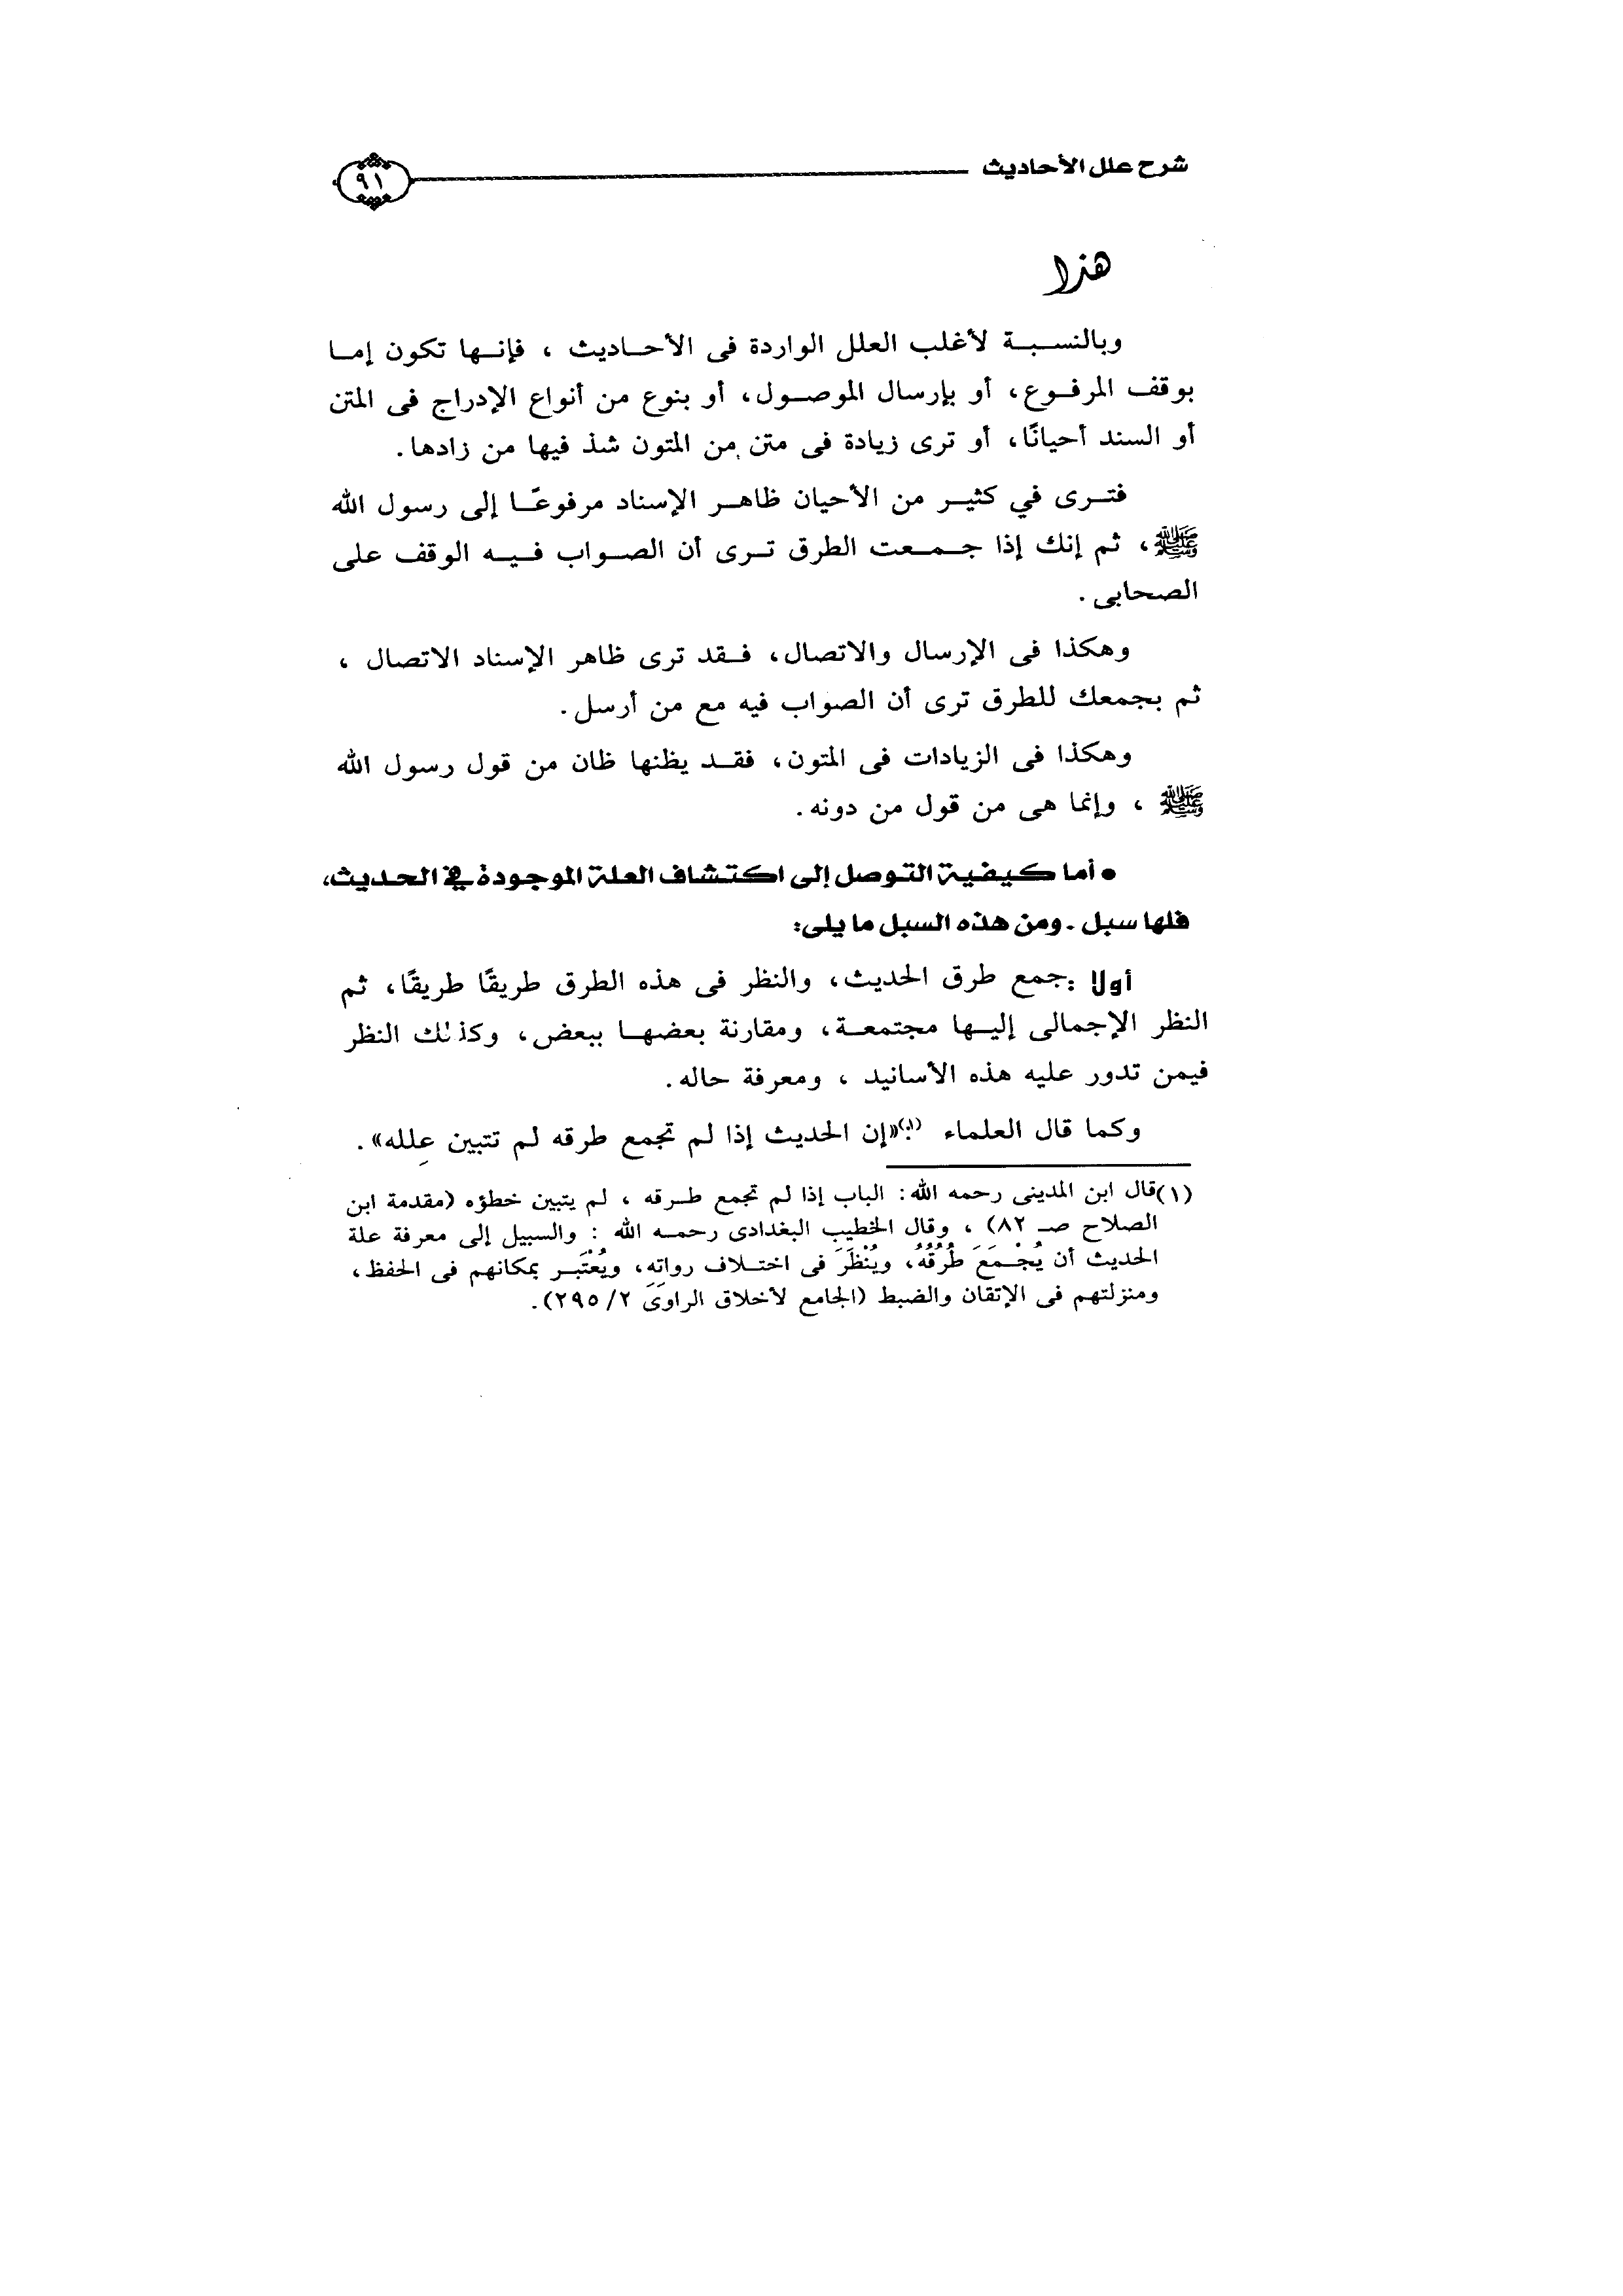 شرح علل الأحاديث ٩١
هذا
وبالنسبة لأغلب العلل الواردة فى الأحاديث ، فإنها تكون إما
بوقف المرفوع، أو بإرسال الموصول، أو بنوع من أنواع الإدراج فى المتن
أو السند أحيانًا، أو ترى زيادة فى متن من المتون شذ فيها من زادها.
فترى في كثير من الأحيان ظاهر الإسناد مرفوعًا إلى رسول الله
ﷺ، ثم إنك إذا جمعت الطرق ترى أن الصواب فيه الوقف على
الصحابى.
وهكذا فى الإرسال والاتصال، فقد ترى ظاهر الإسناد الاتصال ،
ثم بجمعك للطرق ترى أن الصواب فيه مع من أرسل.
وهكذا فى الزيادات فى المتون، فقد يظنها ظان من قول رسول الله
ﷺ ، وإنما هى من قول من دونه.
• أما كيفية التوصل إلى اكتشاف العلة الموجودة في الحديث،
فلها سبل. ومن هذه السبل ما يلى:
أولا :جمع طرق الحديث، والنظر فى هذه الطرق طريقًا طريقًا، ثم
النظر الإجمالى إليها مجتمعة، ومقارنة بعضها ببعض، وكذلك النظر
فيمن تدور عليه هذه الأسانيد ، ومعرفة حاله.
وكما قال العلماء (١):«إن الحديث إذا لم تجمع طرقه لم تتبين عِلله».
(١)قال ابن المدينى رحمه الله: الباب إذا لم تجمع طرقه ، لم يتبين خطؤه (مقدمة ابن
الصلاح صـ ٨٢) ، وقال الخطيب البغدادى رحمه الله : والسبيل إلى معرفة علة
الحديث أن يُجْمَعَ طُرُقُهُ، ويُنْظَرَ فى اختلاف رواته، ويُعْتَبر بمكانهم فى الحفظ،
ومنزلتهم فى الإتقان والضبط (الجامع لأخلاق الراوى ٢/ ٢٩٥).